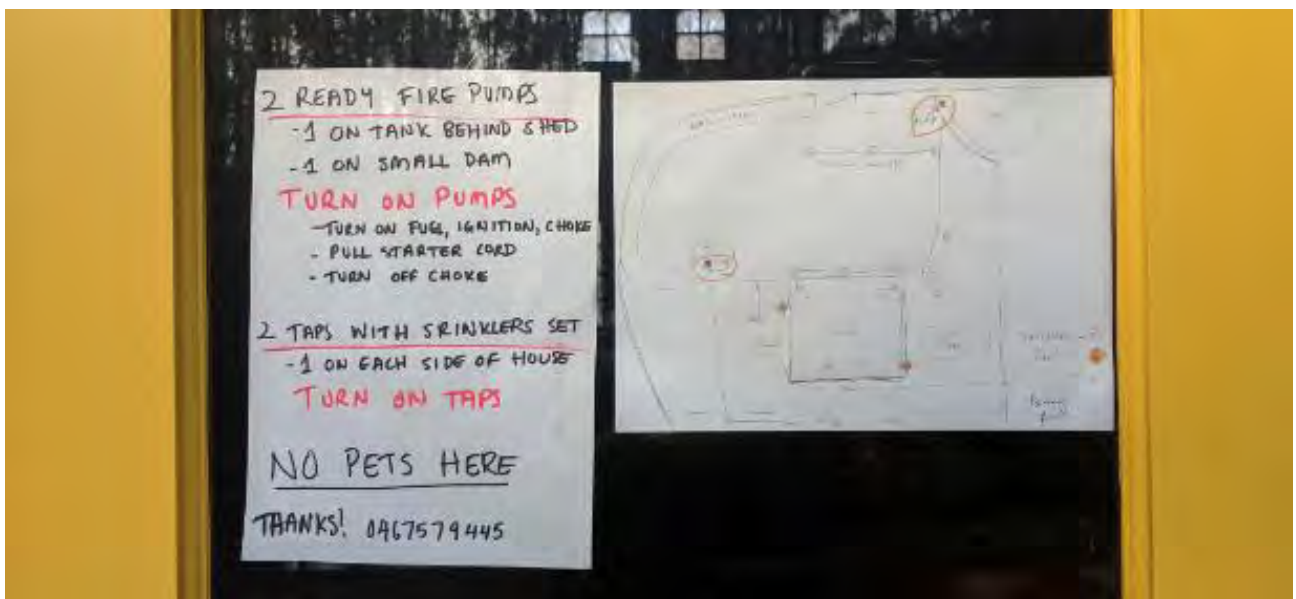 2 READY FIRE PUMPS
-1 ON TANK BEHIND SHED
-1 ON SMALL DAM
TURN ON PUMPS
-TURN ON FUEL, IGNITION, CHOKE
- PULL STARTER CORD
- TURN OFF CHOKE
2 TAPS WITH SRINKLERS SET
-1 ON EACH SIDE OF HOUSE
TURN ON TAPS
NO PETS HERE
THANKS! 0467579445